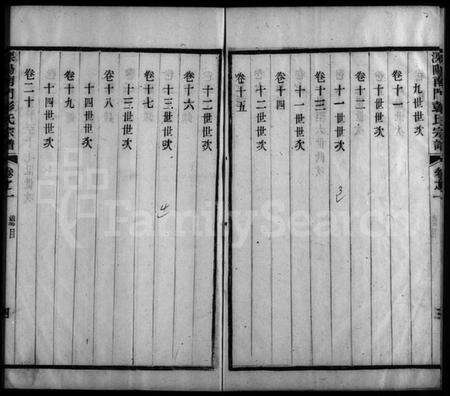 溧陽南門彭氏宗譜 卷之一 三
九世世次
卷十一
十世世次
卷十二
十一世世次
卷十三
十一世世次
卷十四
十二世世次
卷十五
十二世世次
卷十六
十三世世次
卷十七
十三世世次
卷十八
十四世世次
卷十九
十四世世次
卷二十
溧陽南門彭氏宗譜 卷之一 總目 四
FamilySearch